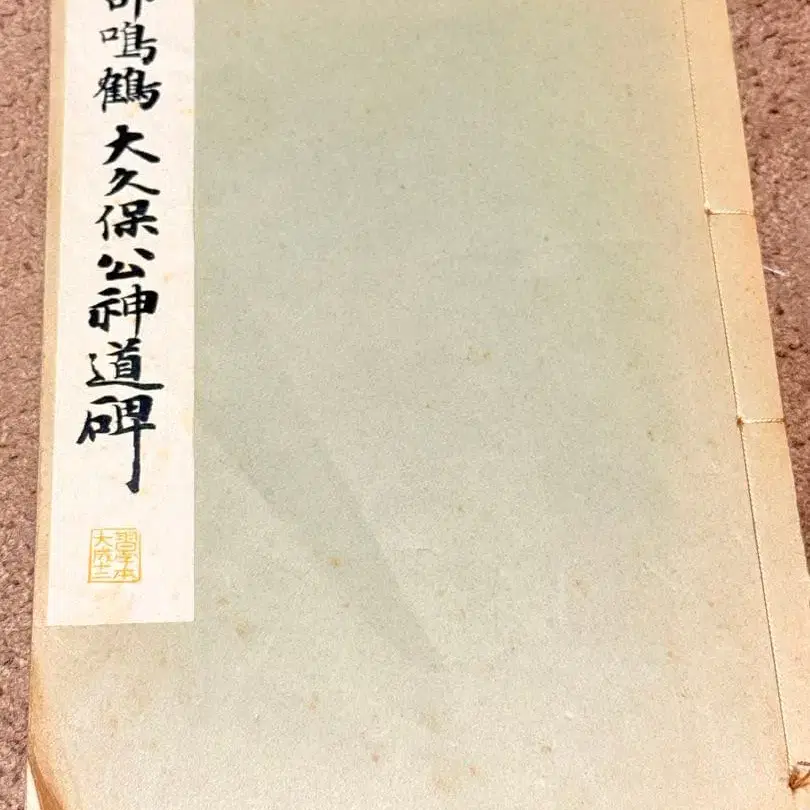 部鳴鶴 大久保公神道碑
習字本
大成十